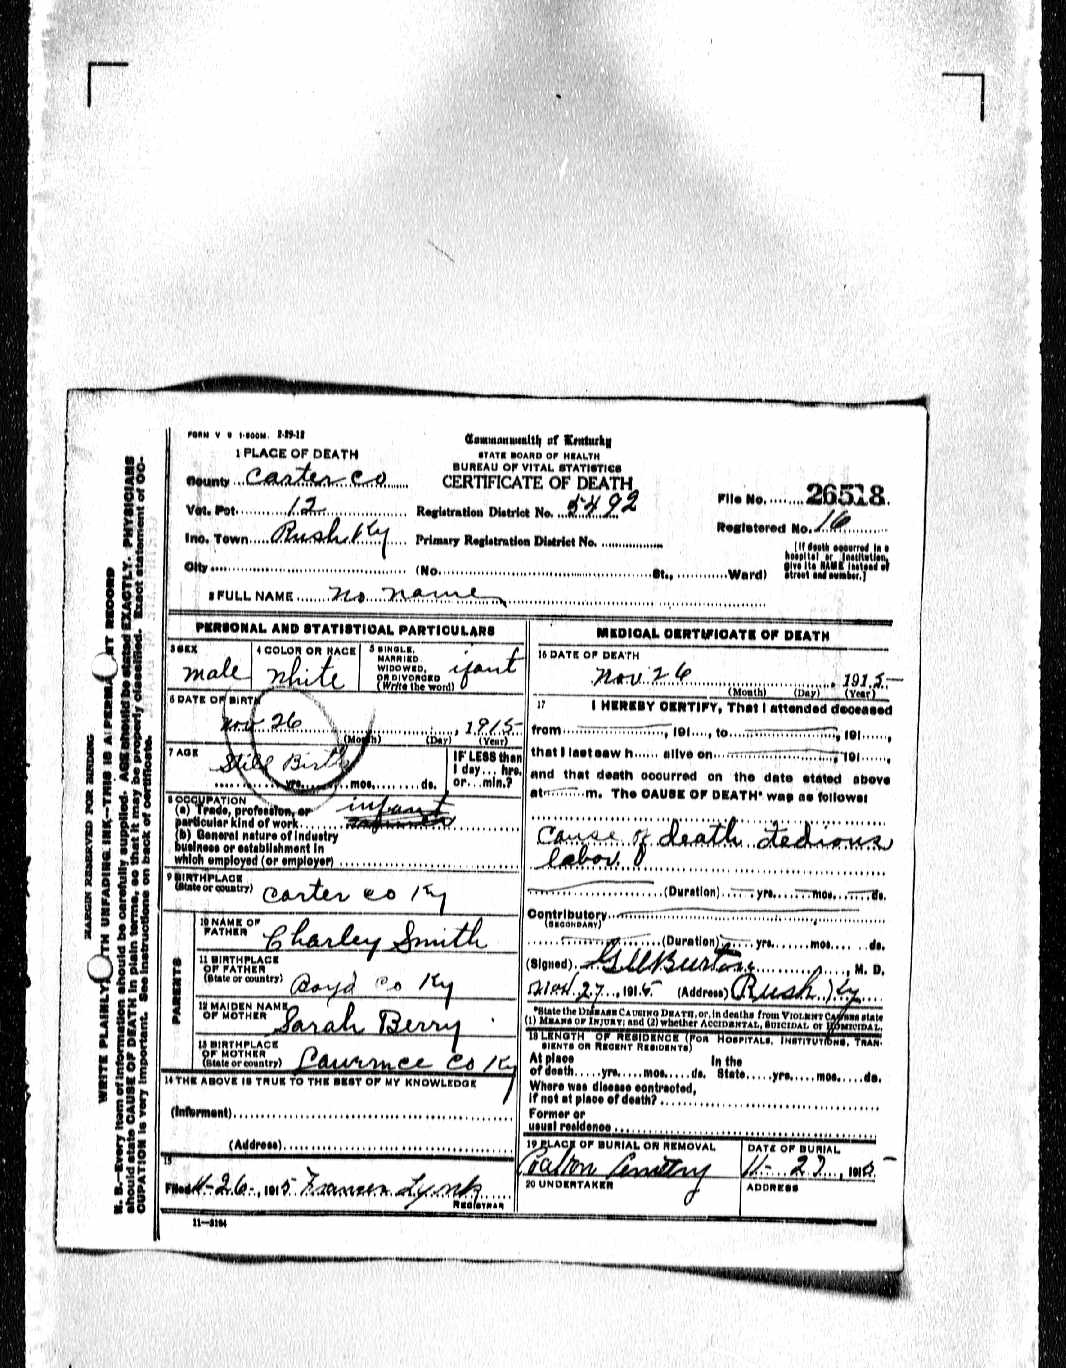 FORM V S 1-500M. 2-29-12
Commonwealth of Kentucky
STATE BOARD OF HEALTH
BUREAU OF VITAL STATISTICS
CERTIFICATE OF DEATH
1 PLACE OF DEATH
County Carter Co
Vot. Pct. 12
Registration District No. 5492
File No. 26518
Inc. Town Rush Ky
Primary Registration District No.
Registered No. 16
City (No. St., Ward)
[If death occurred in a hospital or institution, give its NAME instead of street and number.]
2 FULL NAME no name
PERSONAL AND STATISTICAL PARTICULARS
3 SEX male
4 COLOR OR RACE White
5 SINGLE, MARRIED WIDOWED, OR DIVORCED (Write the word) ifant
6 DATE OF BIRTH
Nov 26, 1915
(Month) (Day) (Year)
7 AGE Still Birth
yrs. mos. ds.
IF LESS than 1 day... hrs. or... min.?
8 OCCUPATION
(a) Trade, profession, or particular kind of work infant
(b) General nature of industry business or establishment in which employed (or employer)
9 BIRTHPLACE (State or country) Carter co Ky
PARENTS
10 NAME OF FATHER Charley Smith
11 BIRTHPLACE OF FATHER (State or country) Boyd Co Ky
12 MAIDEN NAME OF MOTHER Sarah Berry
13 BIRTHPLACE OF MOTHER (State or country) Lawrnce Co Ky
14 THE ABOVE IS TRUE TO THE BEST OF MY KNOWLEDGE
(Informant)
(Address)
15
Filed 11-26-, 1915 Frances Lyons
REGISTRAR
11—3184
MEDICAL CERTIFICATE OF DEATH
16 DATE OF DEATH
Nov 26, 1915
(Month) (Day) (Year)
17 I HEREBY CERTIFY, That I attended deceased
from , 191..., to , 191...,
that I last saw h... alive on , 191...,
and that death occurred on the date stated above
at m. The CAUSE OF DEATH* was as follows:
Cause of death tedious
labor
(Duration) yrs. mos. ds.
Contributory
(SECONDARY)
(Duration) yrs. mos. ds.
(Signed) Burton, M. D.
27, 1915 (Address) Rush Ky
*State the DISEASE CAUSING DEATH, or, in deaths from VIOLENT CAUSES state
(1) MEANS OF INJURY; and (2) whether ACCIDENTAL, SUICIDAL or HOMICIDAL.
18 LENGTH OF RESIDENCE (FOR HOSPITALS, INSTITUTIONS, TRANSIENTS OR RECENT RESIDENTS)
At place of death yrs. mos. ds. In the State yrs. mos. ds.
Where was disease contracted,
if not at place of death?
Former or
usual residence
19 PLACE OF BURIAL OR REMOVAL
Coalton Cemetry
DATE OF BURIAL
11-27, 1915
20 UNDERTAKER
ADDRESS
MARGIN RESERVED FOR BINDING
WRITE PLAINLY, WITH UNFADING INK—THIS IS A PERMANENT RECORD
N. B.—Every item of information should be carefully supplied. AGE should be stated EXACTLY. PHYSICIANS
should state CAUSE OF DEATH in plain terms, so that it may be properly classified. Exact statement of OC-
CUPATION is very important. See instructions on back of certificate.